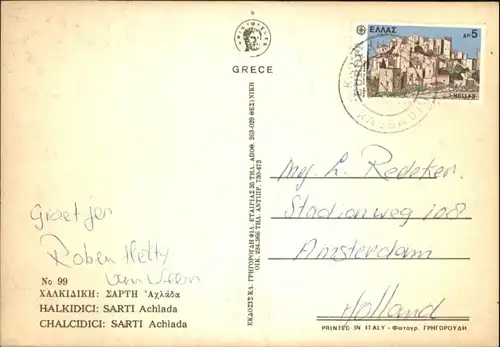 ΑΡΙΣΤΟΤΕΛΗΣ
GRECE
ΕΛΛΑΣ ΔΡ 5
HELLAS
Groetjes
Rob en Hetty
van Veen
No 99
ΧΑΛΚΙΔΙΚΗ: ΣΑΡΤΗ 'Αχλάδα
HALKIDICI: SARTI Achlada
CHALCIDICI: SARTI Achlada
ΕΚΔΟΣΙΣ ΚΛ. ΓΡΗΓΟΡΟΥΔΗ ΦΙΛ. ΕΤΑΙΡΙΑΣ 35 ΤΗΛ. ΑΠΟΘ. 263-029 ΘΕΣ/ΝΙΚΗ
ΟΙΚ. 234.366 ΤΗΛ. ΑΝΤΙΠΡ. 730-473
Mej. L. Redeker
Stadionweg 108
Amsterdam
Holland
PRINTED IN ITALY - Φωτογρ. ΓΡΗΓΟΡΟΥΔΗ